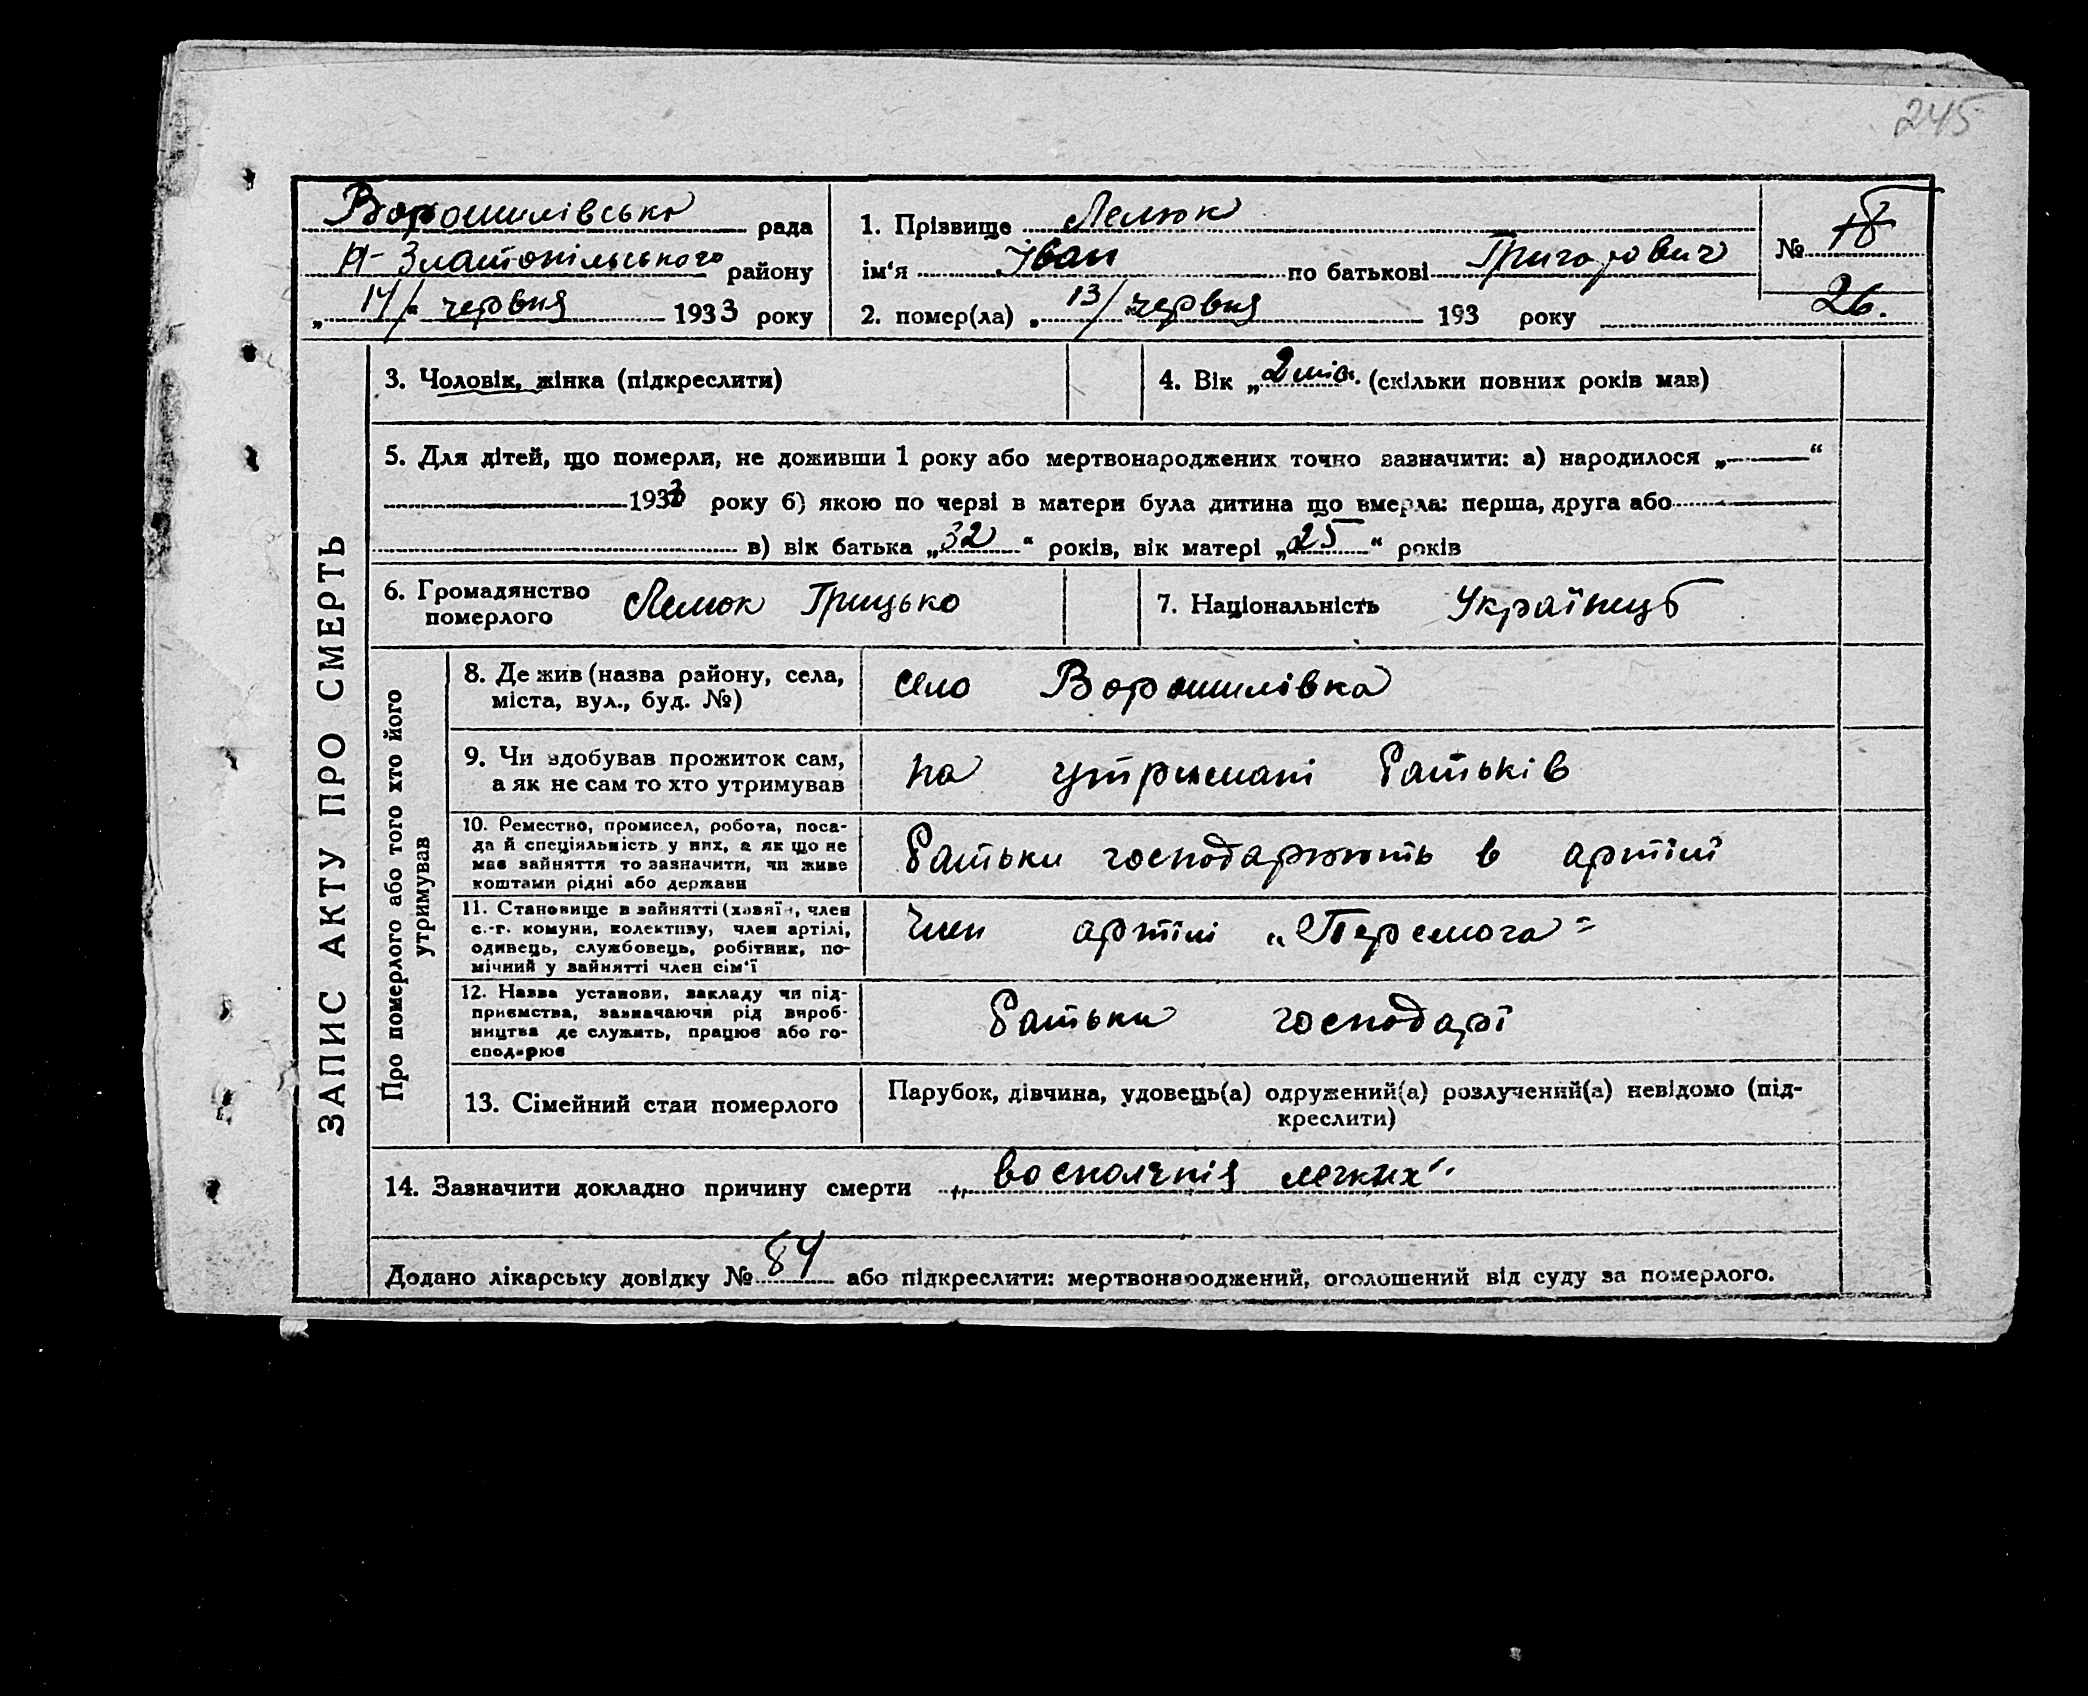 245
Ворошилівська рада
Н-Златопільського району
„14" червня 1933 року
1. Прізвище Лелюк
ім'я Іван по батькові Григорович
2. помер(ла) „13" червня 193 року
№ 18
26.
ЗАПИС АКТУ ПРО СМЕРТЬ
3. Чоловік, жінка (підкреслити)
4. Вік „2 міс. (скільки повних років мав)
5. Для дітей, що померли, не доживши 1 року або мертвонароджених точно зазначити: а) народилося „——"
1933 року б) якою по черві в матери була дитина що вмерла: перша, друга або
в) вік батька „32" років, вік матері „25" років
6. Громадянство
померлого Лелюк Грицько
7. Національність Українець
Про померлого або того хто його
утримував
8. Де жив (назва району, села,
міста, вул., буд. №)
село Ворошилівка
9. Чи здобував прожиток сам,
а як не сам то хто утримував
на утримані батьків
10. Ремество, промисел, робота, поса-
да й спеціяльність у них, а як що не
мав зайняття то зазначити, чи живе
коштами рідні або держави
батьки господарюють в артілі
11. Становище в зайнятті (хазяїн, член
с.-г. комуни, колективу, член артілі,
одинець, службовець, робітник, по-
мічний у зайнятті член сім'ї
Член артілі „Перемога"
12. Назва установи, закладу чи під-
приємства, зазначаючи рід вироб-
ництва де служить, працює або го-
сподарює
батьки господарі
13. Сімейний стан померлого
Парубок, дівчина, удовець(а) одружений(а) розлучений(а) невідомо (під-
креслити)
14. Зазначити докладно причину смерти „восполєнія легких"
Додано лікарську довідку № 84 або підкреслити: мертвонароджений, оголошений від суду за померлого.